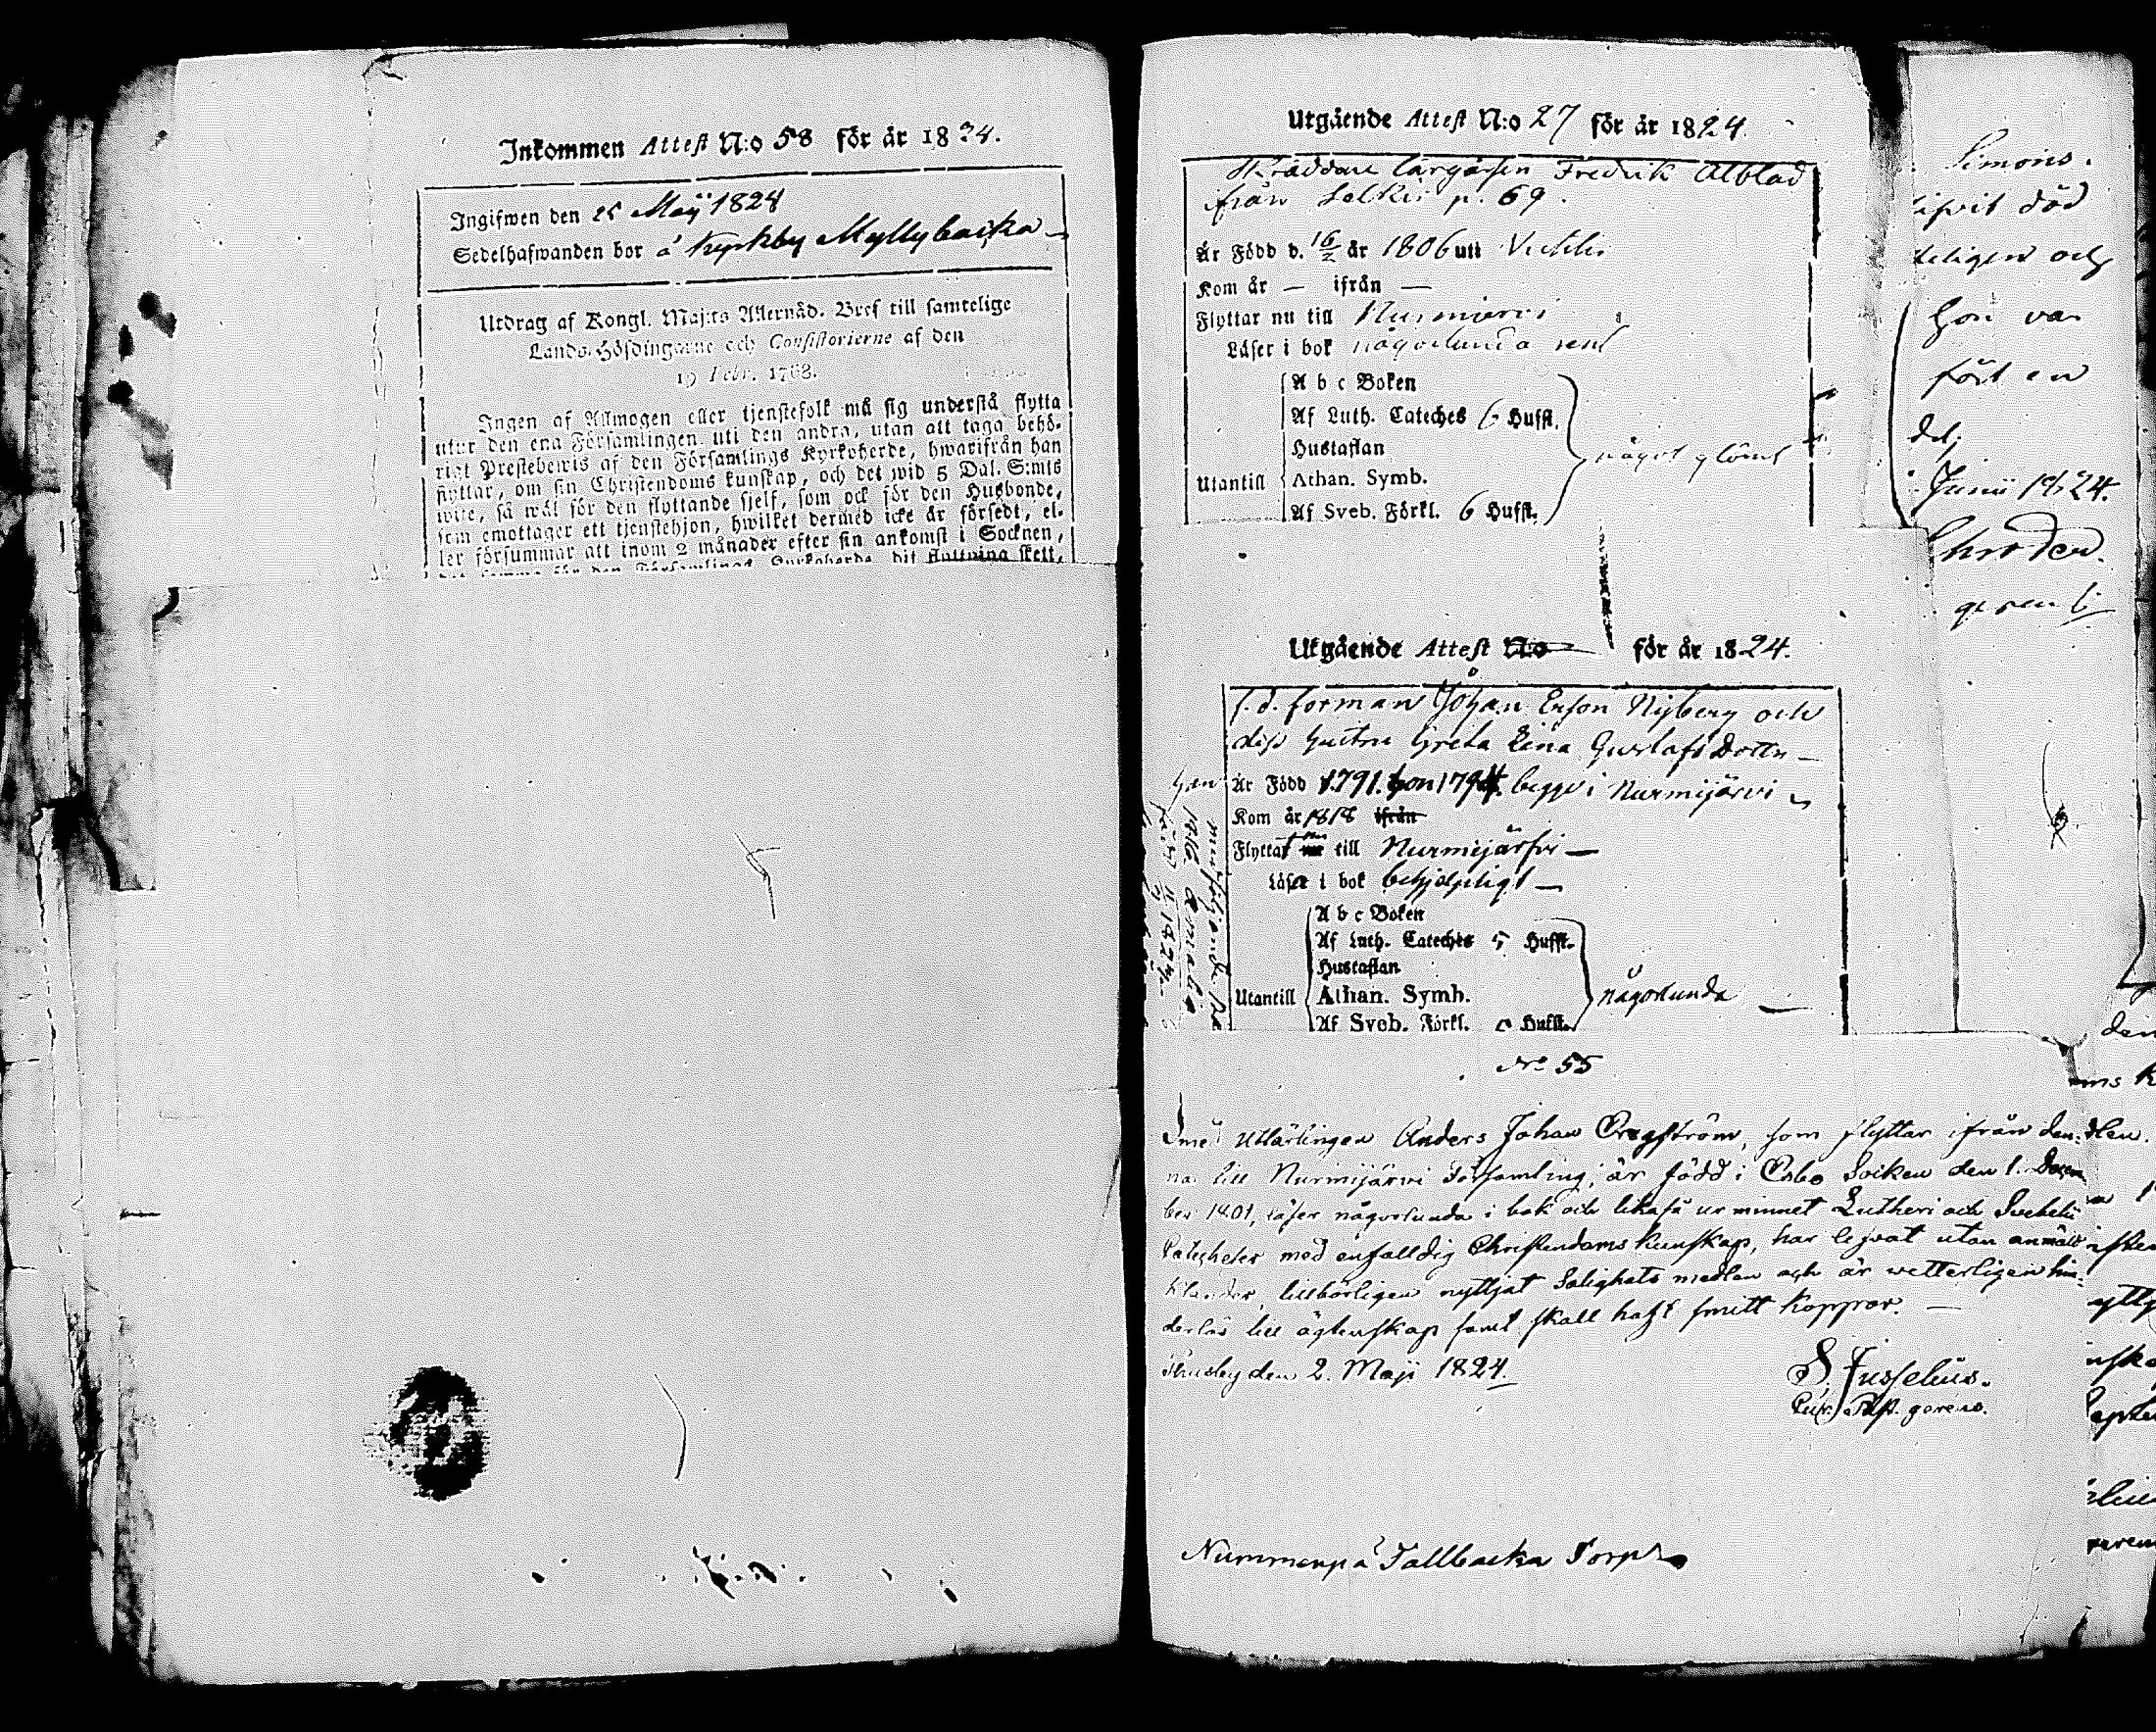 Inkommen Attest N:o 58 för år 1824.
Ingifwen den 25 Maji 1824
Sedelhafwanden bor å Kyrkby Myllybacka
Utdrag af Kongl. Maj:ts Allernåd. Bref till samtelige
Lands-Höfdingarne och Consistorierne af den
19 Febr. 1768.
Ingen af Allmogen eller tjenstefolk må sig understå flytta
utur den ena Församlingen uti den andra, utan att taga behö-
rigt Prestebewis af den Församlings Kyrkoherde, hwarifrån han
flyttar, om sin Christendoms kunskap, och det wid 5 Dal. S:mts
wite, så wäl för den flyttande sjelf, som ock för den Husbonde,
som emottager ett tjenstehjon, hwilket dermed icke är försedt, el-
ler försummar att inom 2 månader efter sin ankomst i Socknen,
Församlings Kyrkoherde, dit flyttning skett,
Utgående Attest N:o 27 för år 1824.
Skräddare Lärgåssen Fredrik Alblad
ifrån Selki p. 69.
Är Född d. 16/2 år 1806 uti
Kom år — ifrån —
Flyttar nu till Nurmijervi
Läser i bok någorlunda rent
A b c Boken
Af Luth. Cateches 6 Hufst.
Hustaflan
Utantill Athan. Symb. något glömt
Af Sveb. Förkl. 6 Hufst.
Utgående Attest N:o för år 1824.
f.d. Forman Johan Erson Nyberg och
dess Hustru Greta Lena Gustafs Dotter
han Är Född 1791. hon 1794. begge i Nurmijärvi
Kom år 1818 ifrån
Flyttat nu till Nurmijärfvi —
Läser i bok behjelpligt —
A b c Boken
Af Luth. Cateches 5 Hufst.
Hustaflan
Utantill Athan. Symb. någorlunda —
Af Sveb. Förkl. Hufst.
No 55
Smeds Utlärlingen Anders Johan Bergström, som flyttar ifrån den-
na till Nurmijärvi Församling, är född i Esbo Socken den 1. Decem
ber 1801, läser någorlunda i bok och likaså ur minnet Lutheri och Svebelii
Catecheser med enfalldig Christendoms kunskap, har lefvat utan anmält
klander, tillbörligen nyttjat Salighets medlen och är wetterligen hin-
derlös till ägtenskap samt skall haft smitt koppor. —
Thusby den 2. Maji 1824.
S. Jusselius.
Past. görens.
Nummenpä Tallbacka Torp
Simons.
död
teligen och
Hon var
fört en
Junii 1824.